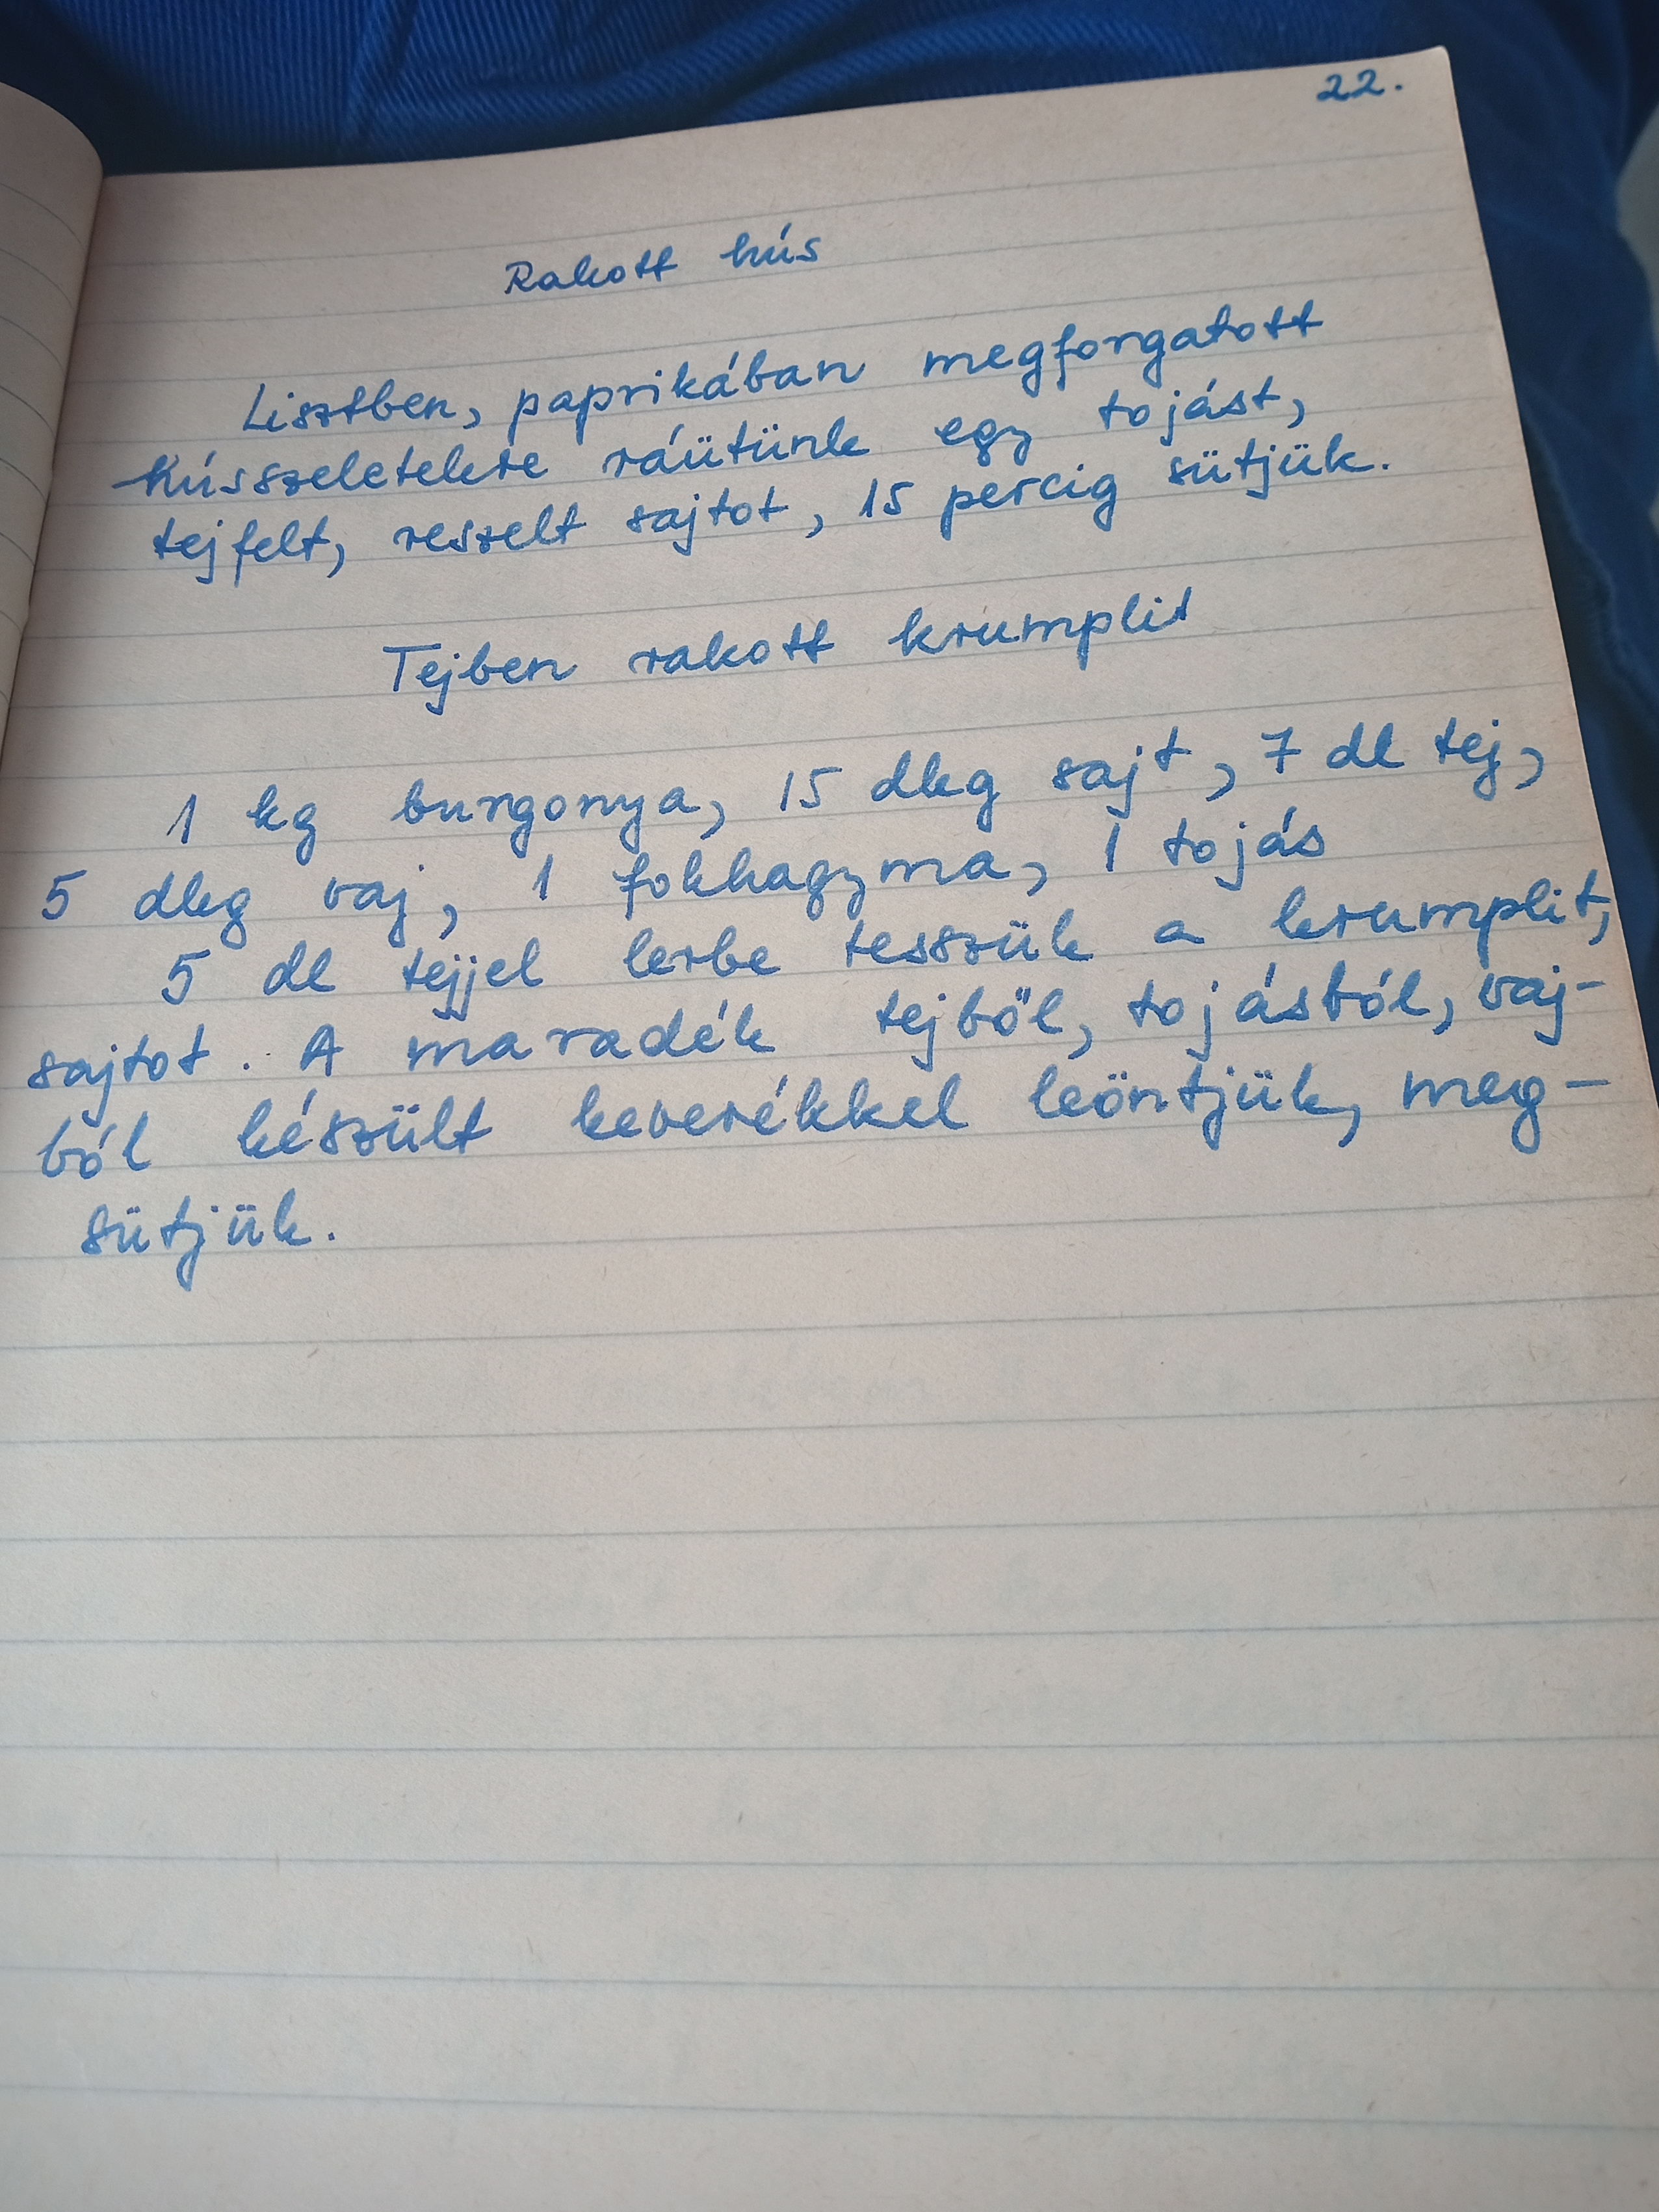 22.
Rakott hús
Lisztben, paprikában megforgatott
hússzeletekre ráütünk egy tojást,
tejfelt, reszelt sajtot, 15 percig sütjük.
Tejben rakott krumplit
1 kg burgonya, 15 dkg sajt, 7 dl tej,
5 dkg vaj, 1 fokhagyma, 1 tojás
5 dl tejjel lerbe tesszük a krumplit,
sajtot. A maradék tejből, tojásból, vaj-
ból készült keverékkel leöntjük, meg-
sütjük.